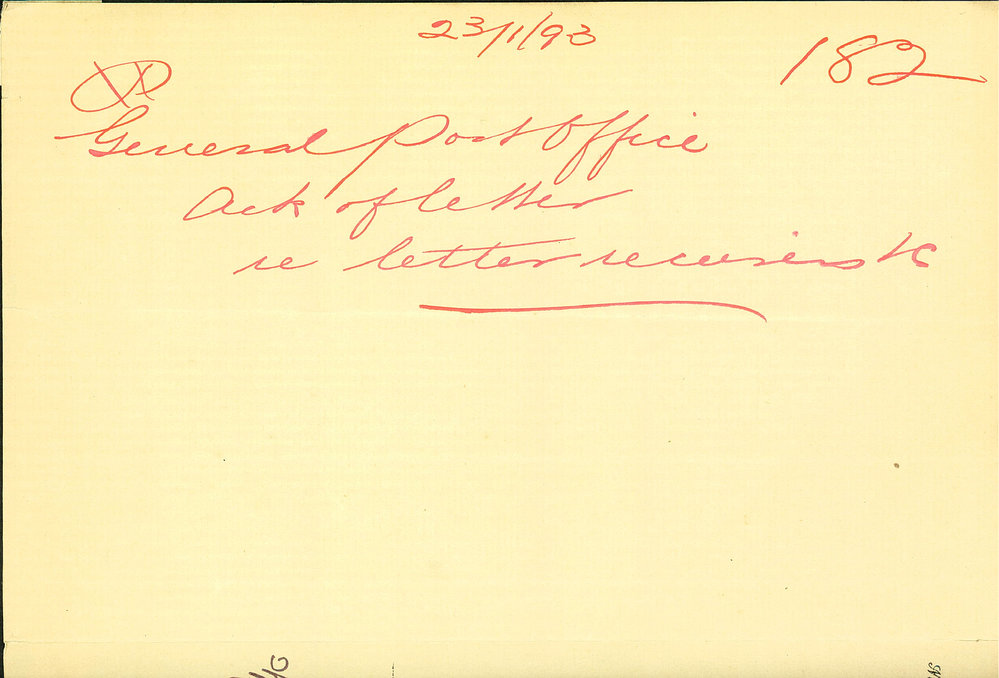 23/1/93
182
General Post Office
Ack of letter
re letter receivers &c